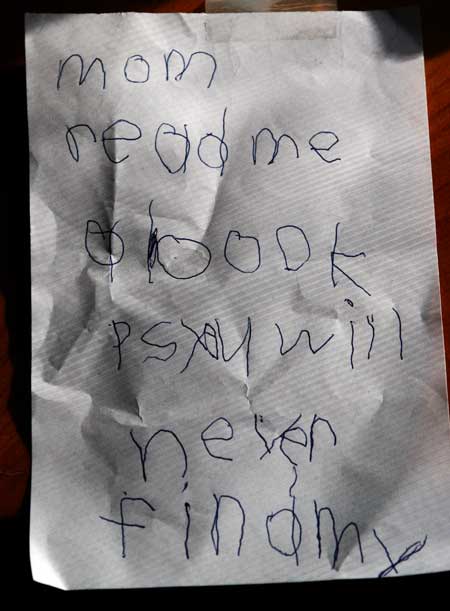 mom
read me
a book
ps will
never
find my